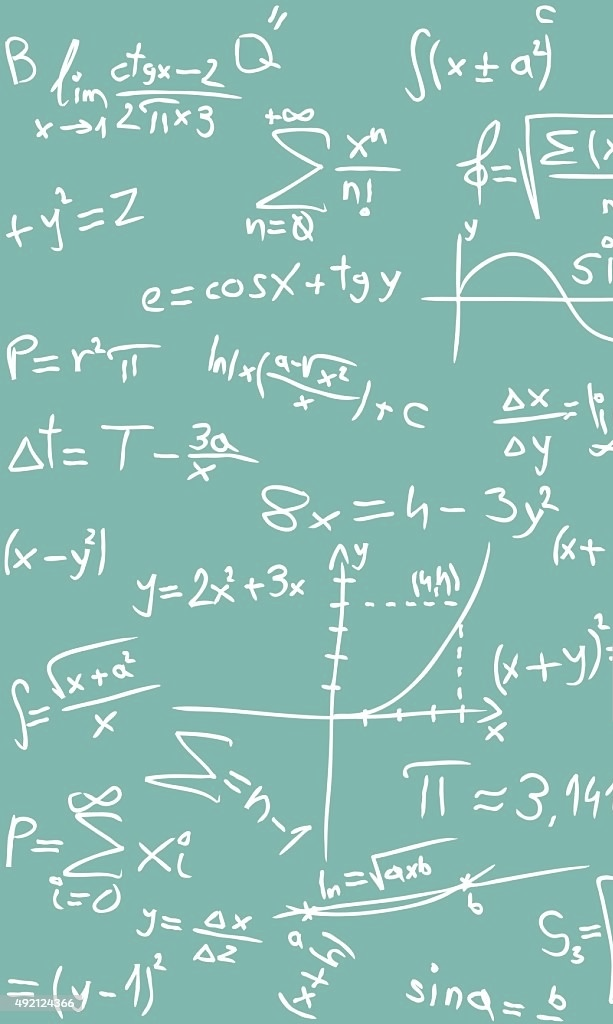 B lim x→1 ctgx-2 / 2πx3
Q"
∫(x ± a²)
c
+∞ Σ n=0 xⁿ / n!
+ y² = Z
e = cosx + tg y
y
P = r²π
ln|x(a-√x² / x)+c
Δx / Δy =
Δt = T - 3a / x
8x = 4 - 3y²
(x-y²)
(x+
y = 2x² + 3x
y
(4,4)
x
(x+y)²=
∫= √x+a² / x
Σ = n-1
π ≈ 3,14
P = ∞ Σ i=0 xi
ln = √axb
a
b
y = Δx / Δz
S₃ =
= (y-1)²
sina = b
492124366